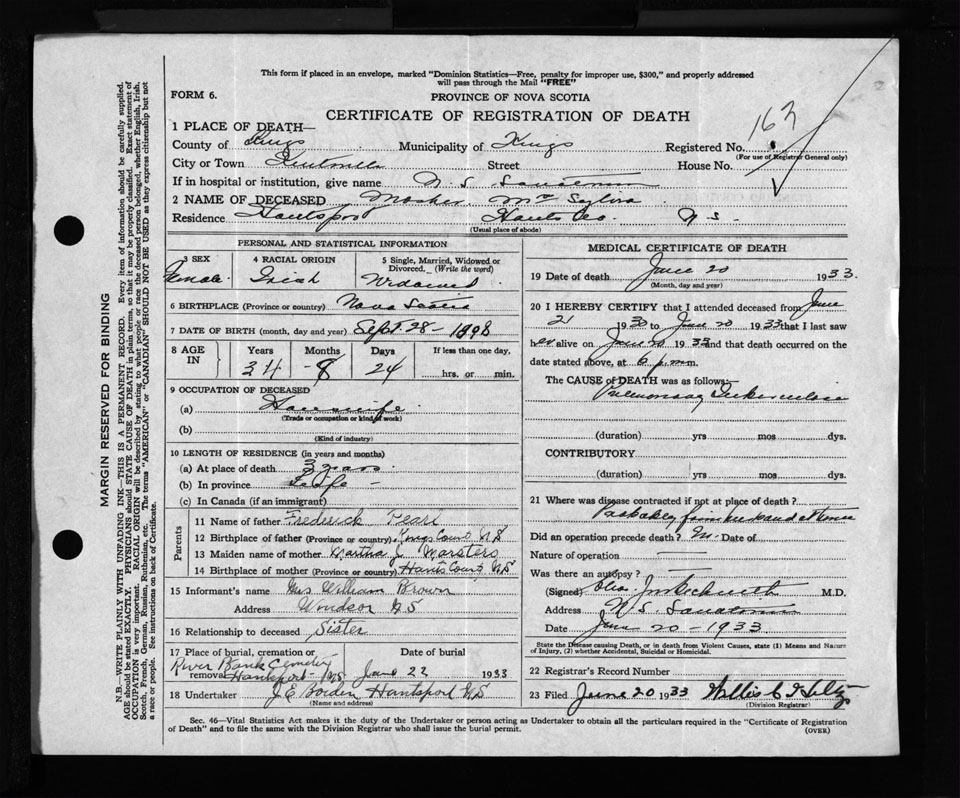 This form if placed in an envelope, marked "Dominion Statistics—Free, penalty for improper use, $300," and properly addressed
will pass through the Mail "FREE"
FORM 6.
PROVINCE OF NOVA SCOTIA
CERTIFICATE OF REGISTRATION OF DEATH
163
1 PLACE OF DEATH—
County of Kings Municipality of Kings Registered No.
(For use of Registrar General only)
City or Town Kentville Street House No.
If in hospital or institution, give name N S Sanatorium
2 NAME OF DECEASED Mosher Mrs Sylvia
Residence Hantsport Hants Co. N S-
(Usual place of abode)
PERSONAL AND STATISTICAL INFORMATION
3 SEX 4 RACIAL ORIGIN 5 Single, Married, Widowed or
Divorced. (Write the word)
Female Irish Widowed
6 BIRTHPLACE (Province or country) Nova Scotia
7 DATE OF BIRTH (month, day and year) Sept-28-1898
8 AGE IN Years Months Days If less than one day,
34 -8 24 hrs. or min.
9 OCCUPATION OF DECEASED
(a) Housewife
(Trade or occupation or kind of work)
(b)
(Kind of industry)
10 LENGTH OF RESIDENCE (in years and months)
(a) At place of death 3 years.
(b) In province Life -
(c) In Canada (if an immigrant)
Parents
11 Name of father Frederick Pearl
12 Birthplace of father (Province or country) Kings County NS
13 Maiden name of mother Martha J Marsters
14 Birthplace of mother (Province or country) Hants County NS
15 Informant's name Mrs William Brown
Address Windsor N.S
16 Relationship to deceased Sister
17 Place of burial, cremation or removal Date of burial
River Bank Cemetery
Hantsport NS June 22 1933
18 Undertaker J.E Borden Hantsport NS
(Name and address)
MEDICAL CERTIFICATE OF DEATH
19 Date of death June 20 1933.
(Month, day and year)
20 I HEREBY CERTIFY that I attended deceased from June
21 1930 to June 20 1933 that I last saw
her alive on June 20 1933 and that death occurred on the
date stated above, at 6 p.m m.
The CAUSE of DEATH was as follows:—
Pulmonary Tuberculosis
(duration) yrs mos dys.
CONTRIBUTORY
(duration) yrs mos dys.
21 Where was disease contracted if not at place of death?
Probably from husband at home
Did an operation precede death? No Date of
Nature of operation —
Was there an autopsy? —
(Signed) M.D.
Address N S Sanatorium
Date June 20-1933.
State the Disease causing Death, or in death from Violent Causes, state (1) Means and Nature
of Injury, (2) whether Accidental, Suicidal or Homicidal.
22 Registrar's Record Number
23 Filed June 20 1933 Willis C
(Division Registrar)
Sec. 46—Vital Statistics Act makes it the duty of the Undertaker or person acting as Undertaker to obtain all the particulars required in the "Certificate of Registration
of Death" and to file the same with the Division Registrar who shall issue the burial permit.
(OVER)
MARGIN RESERVED FOR BINDING
N.B.—WRITE PLAINLY WITH UNFADING INK—THIS IS A PERMANENT RECORD. Every item of information should be carefully supplied.
AGE should be stated EXACTLY. PHYSICIANS should STATE CAUSE OF DEATH in plain terms, so that it may be properly classified. Exact statement of
OCCUPATION is very important. RACIAL ORIGIN will be described by stating to what people or race the deceased person belonged, whether English, Irish,
Scotch, French, German, Russian, Ruthenian, etc. The terms "AMERICAN" or "CANADIAN" SHOULD NOT BE USED as they express citizenship but not
a race or people. See instructions on back of Certificate.